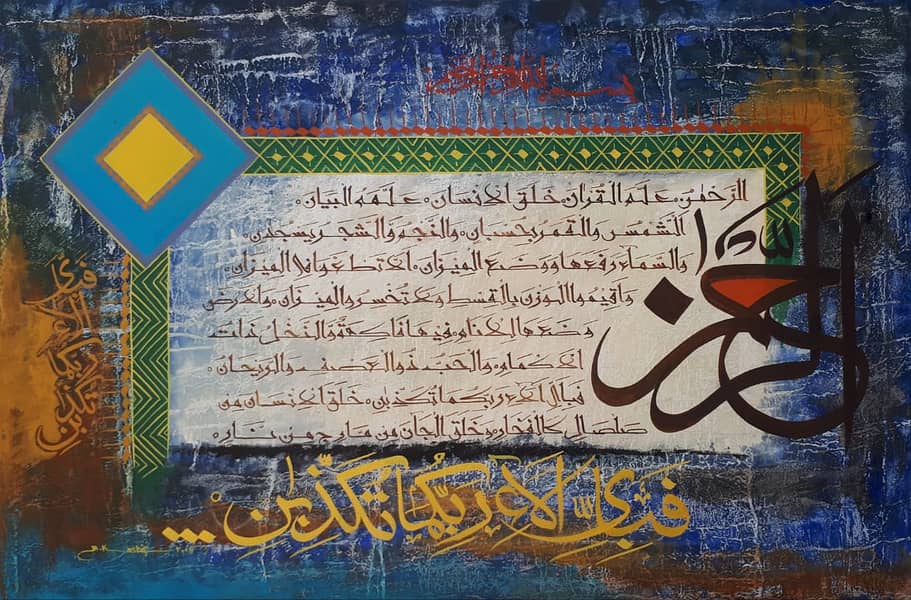 بسم الله الرحمن الرحيم
الرحمن علم القران خلق الانسان علمه البيان
الشمس والقمر بحسبان والنجم والشجر يسجدن
والسماء رفعها ووضع الميزان الا تطغوا في الميزان
واقيموا الوزن بالقسط ولا تخسروا الميزان والارض
وضعها للانام فيها فاكهة والنخل ذات
الاكمام والحب ذو العصف والريحان
فباي الاء ربكما تكذبن خلق الانسان من
صلصال كالفخار وخلق الجان من مارج من نار
الرحمن
فباي الاء ربكما تكذبن
فَبِاَيِّ اٰلَاءِ رَبِّكُمَا تُكَذِّبٰنِ...